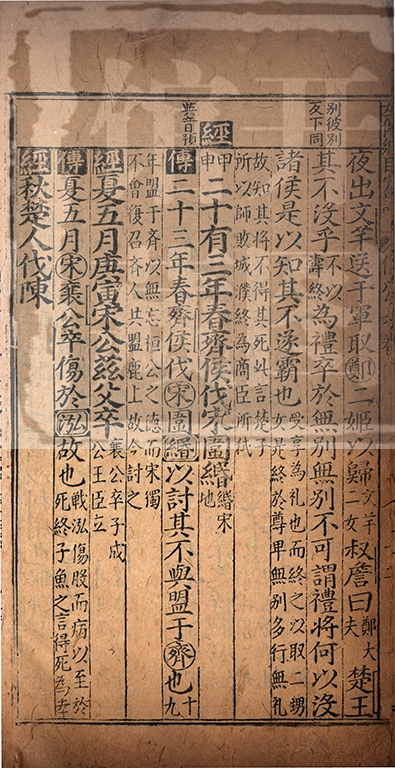 別彼別反下同
夜出文芊送于軍取鄭二姬以歸文芊二女叔詹曰鄭大夫楚王
其不沒乎不以壽終為禮卒於無別無別不可謂禮將何以沒
諸侯是以知其不遂霸也受享為禮也而終之以取二甥女是終於尊卑無別多行無禮
故知其將不得其死此言楚子所以師敗城濮終為商臣所弒
經甲申二十有三年春齊侯伐宋圍緡緡宋地
與音預
傳二十三年春齊侯伐宋圍緡以討其不與盟于齊也十九
年盟于齊以無忘桓公之德而宋獨不會復召齊人共盟鹿上故今討之
經夏五月庚寅宋公茲父卒襄公卒子成公王臣立
傳夏五月宋襄公卒傷於泓故也戰泓傷股而病以至於死終子魚之言得死為幸
經秋楚人伐陳